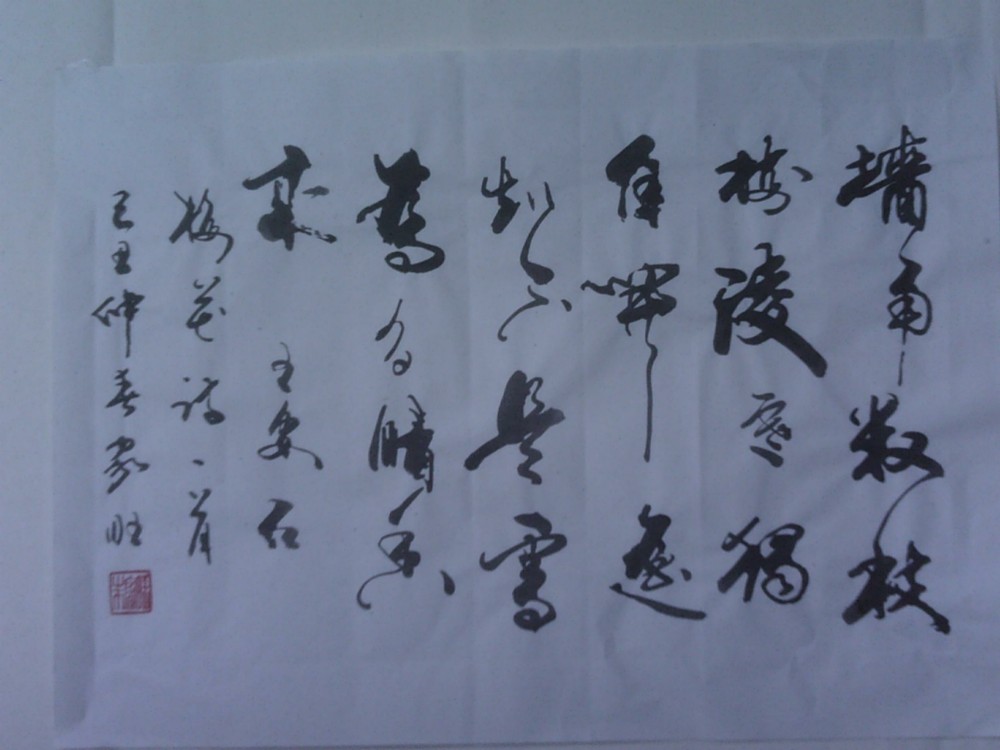 墙角数枝
梅陵寒独
自開遥
知不是雪
為有晴香
来 王安石
梅花诗一首
己丑仲春家旺